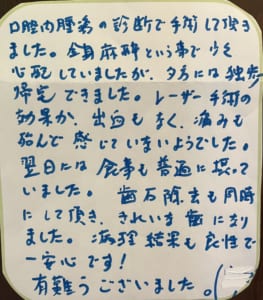 口腔内腫瘍の診断で手術して頂き
ました。全身麻酔という事で少々
心配していましたが、夕方には独歩
帰宅できました。レーザー手術の
効果か、出血もなく、痛みも
殆んど感じていないようでした。
翌日には食事も普通に摂って
いました。 歯石除去も同時
にして頂き、きれいな歯になり
ました。病理結果も良性で
一安心です!
有難うございました。